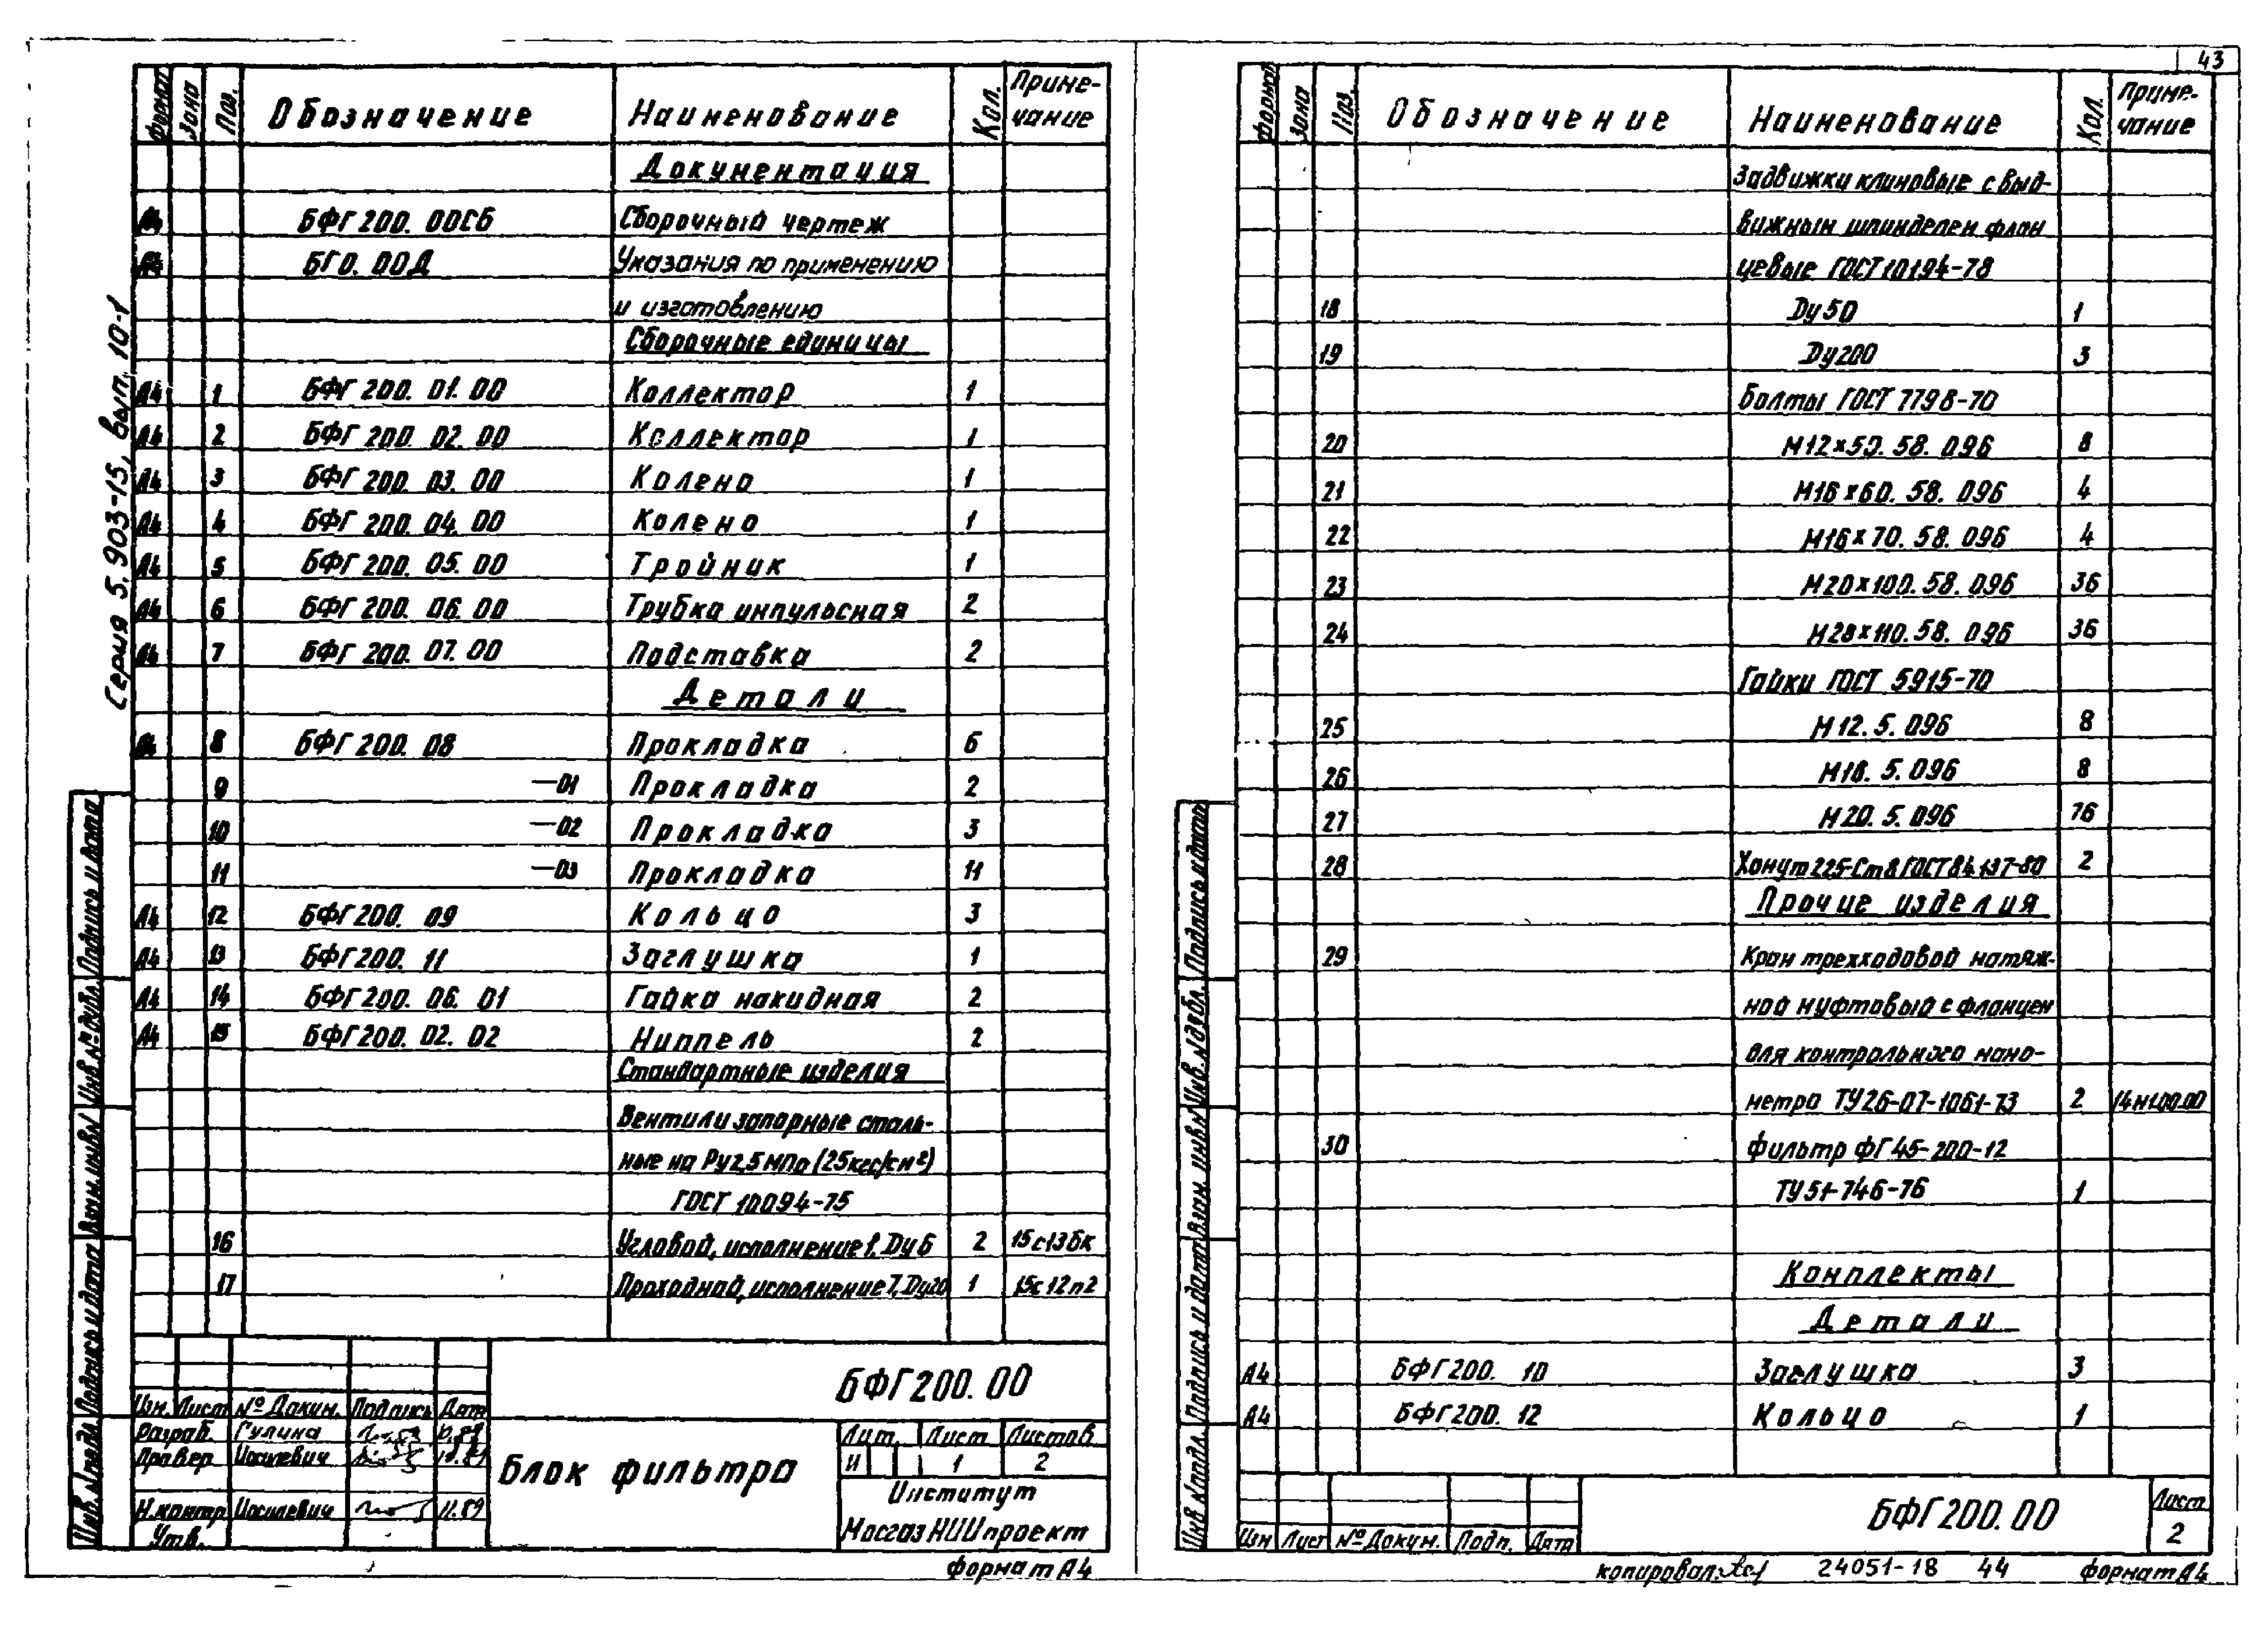 Серия 5.903-15, вып. 10-1
Формат Зона Поз. Обозначение Наименование Кол. Приме-
чание
Документация
А4 БФГ 200. 00СБ Сборочный чертеж
А4 БГ0. 00Д Указания по применению
и изготовлению
Сборочные единицы
А4 1 БФГ 200. 01. 00 Коллектор 1
А4 2 БФГ 200. 02. 00 Коллектор 1
А4 3 БФГ 200. 03. 00 Колено 1
А4 4 БФГ 200. 04. 00 Колено 1
А4 5 БФГ 200. 05. 00 Тройник 1
А4 6 БФГ 200. 06. 00 Трубка импульсная 2
А4 7 БФГ 200. 07. 00 Подставка 2
Детали
А4 8 БФГ 200. 08 Прокладка 6
9 —01 Прокладка 2
10 —02 Прокладка 3
11 —03 Прокладка 11
А4 12 БФГ200. 09 Кольцо 3
А4 13 БФГ200. 11 Заглушка 1
А4 14 БФГ200. 06. 01 Гайка накидная 2
А4 15 БФГ200. 02. 02 Ниппель 2
Стандартные изделия
Вентили запорные сталь-
ные на Ру2,5 МПа (25кгс/см²)
ГОСТ 10094-75
16 Угловой, исполнение 1, Dу6 2 15с13бк
17 Проходной, исполнение 7, Dу20 1 15с12п2
БФГ200. 00
Изм. Лист № Докум. Подпись Дата
Разраб. Гулина
Провер Иосилевич
Н.контр Иосилевич 11.89
Утв.
Блок фильтра
Лит. Лист Листов
И 1 2
Институт
МосгазНИИпроект
формат А4
Подпись и дата
Инв.№дубл.
Взам.инв.№
Подпись и дата
Инв.№подл.
43
Формат Зона Поз. Обозначение Наименование Кол. Приме-
чание
Задвижки клиновые с выд-
вижным шпинделем флан
цевые ГОСТ 10194-78
18 Dу50 1
19 Dу200 3
Болты ГОСТ 7798-70
20 М12×50. 58. 096 8
21 М16×60. 58. 096 4
22 М16×70. 58. 096 4
23 М20×100. 58. 096 36
24 М20×110. 58. 096 36
Гайки ГОСТ 5915-70
25 М12. 5. 096 8
26 М16. 5. 096 8
27 М20. 5. 096 76
28 Хомут 225-Ст8 ГОСТ 84137-80 2
Прочие изделия
29 Кран трехходовой натяж-
ной муфтовый с фланцем
для контрольного мано-
метра ТУ26-07-1061-73 2
30 Фильтр ФГ45-200-12
ТУ51-746-76 1
Комплекты
Детали
А4 БФГ200. 10 Заглушка 3
А4 БФГ200. 12 Кольцо 1
Изм Лист № Докум. Подп. Дата
БФГ200. 00
Лист
2
Подпись и дата
Инв.№дубл.
Взам. инв.№
Подпись и дата
Инв №подл.
копировал: 24051-18 44 формат А4